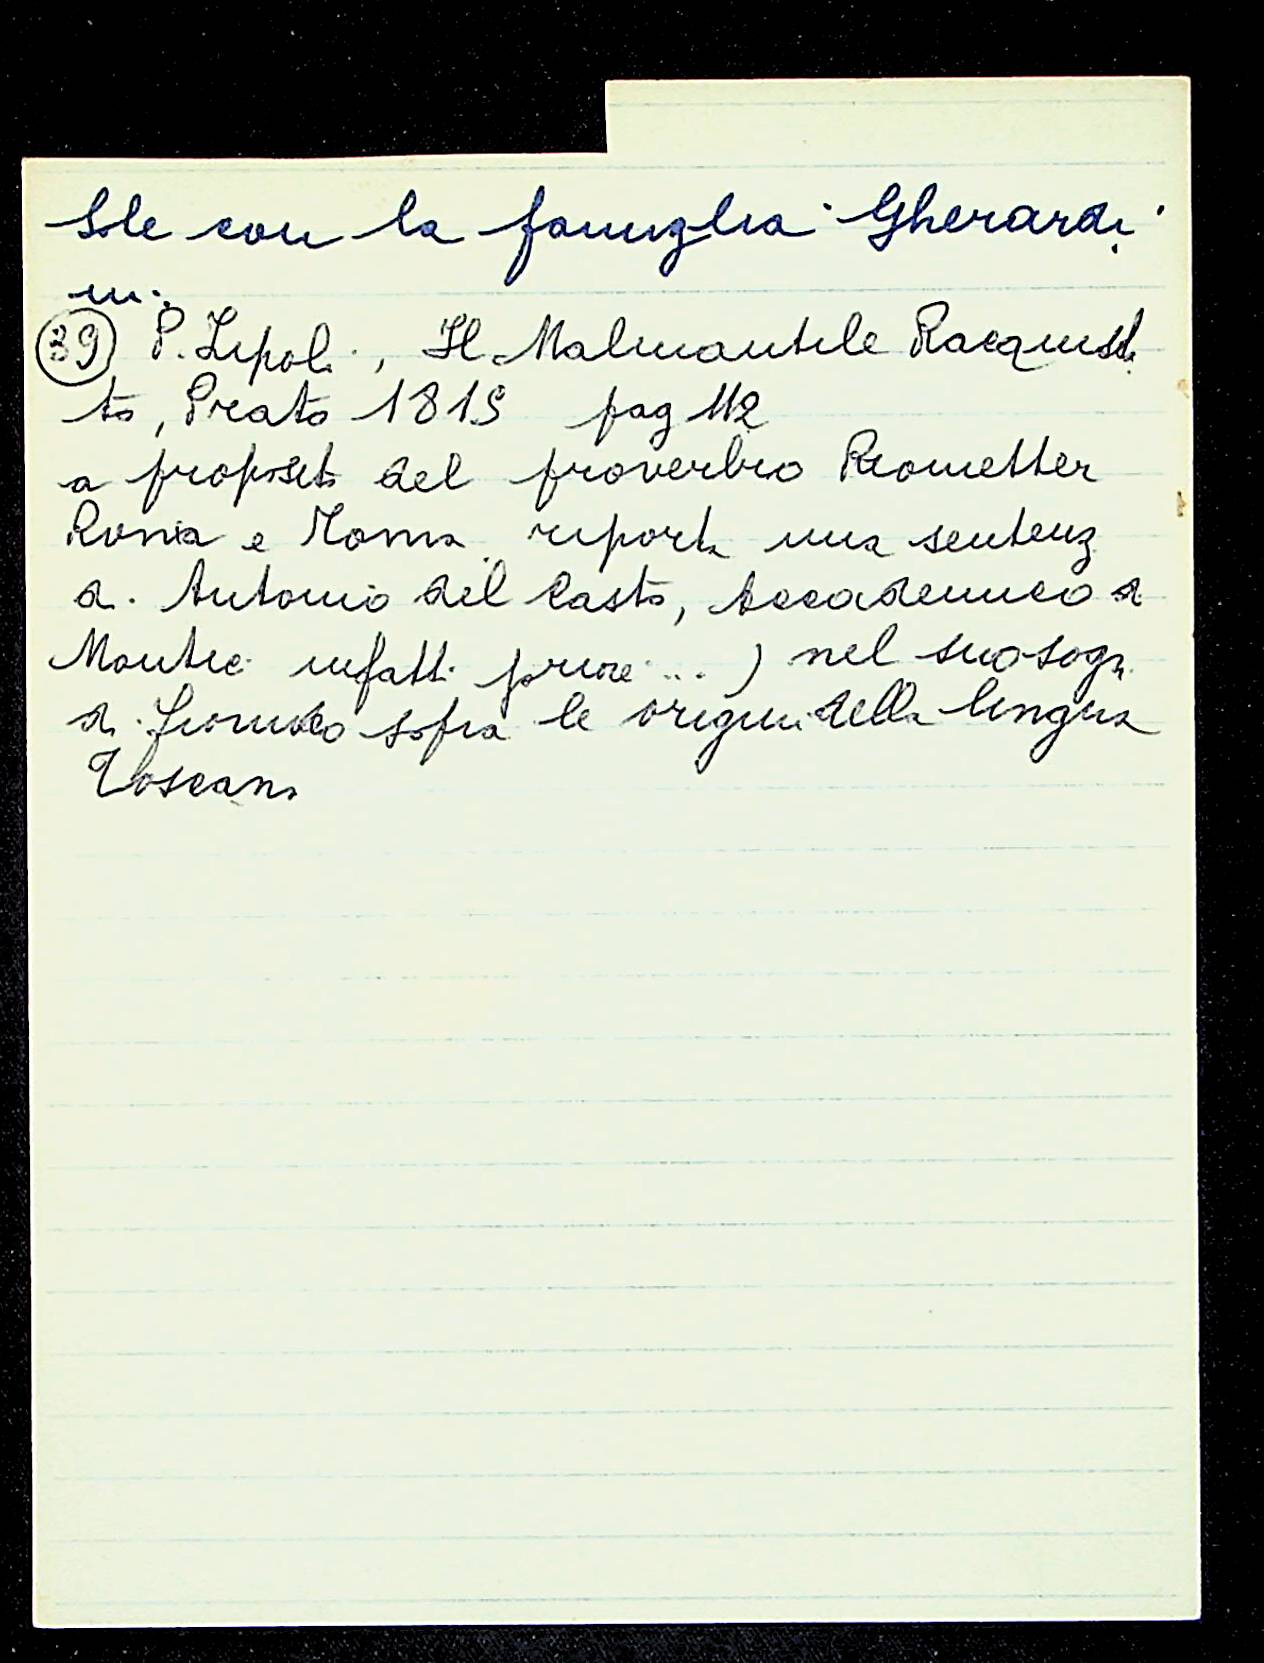 Sole con la famiglia Gherardi
ni.
39 P. Lipoli, Il Malmantile Racquista
to, Prato 1815 pag 112
a proposito del proverbio Prometter
Roma e Toma riporta una sentenz
di Antonio del Casto, Accademico di
Montici infatti ... ) nel suo sogn
di sopra le origini della lingua
Toscana